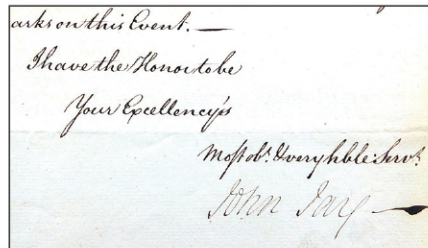 arks on this Event. —
I have the Honor to be
Your Excellency's
Most obt. & very hble: Servt.
John Jay